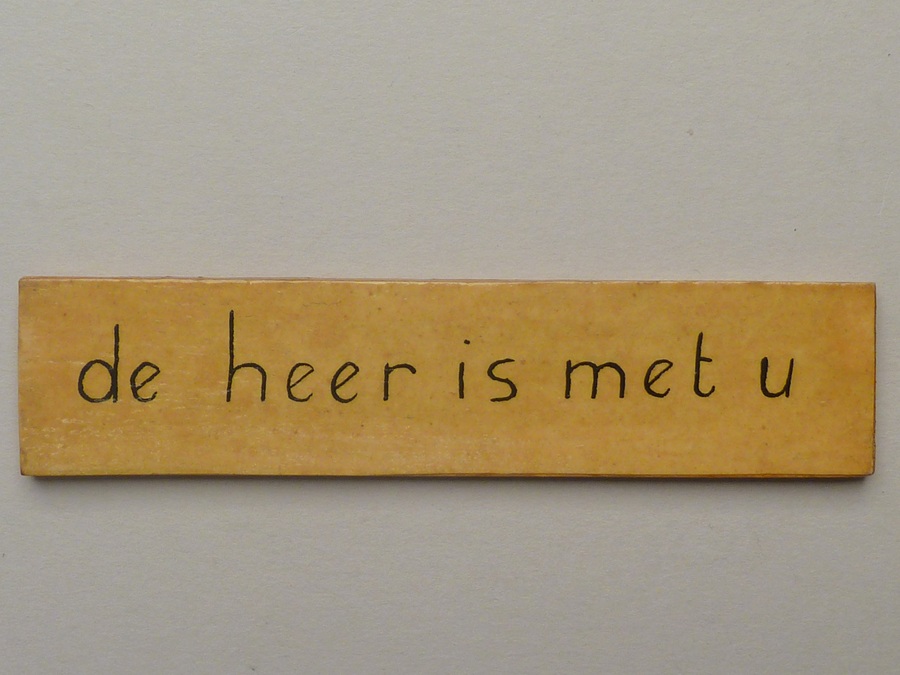 de heer is met u